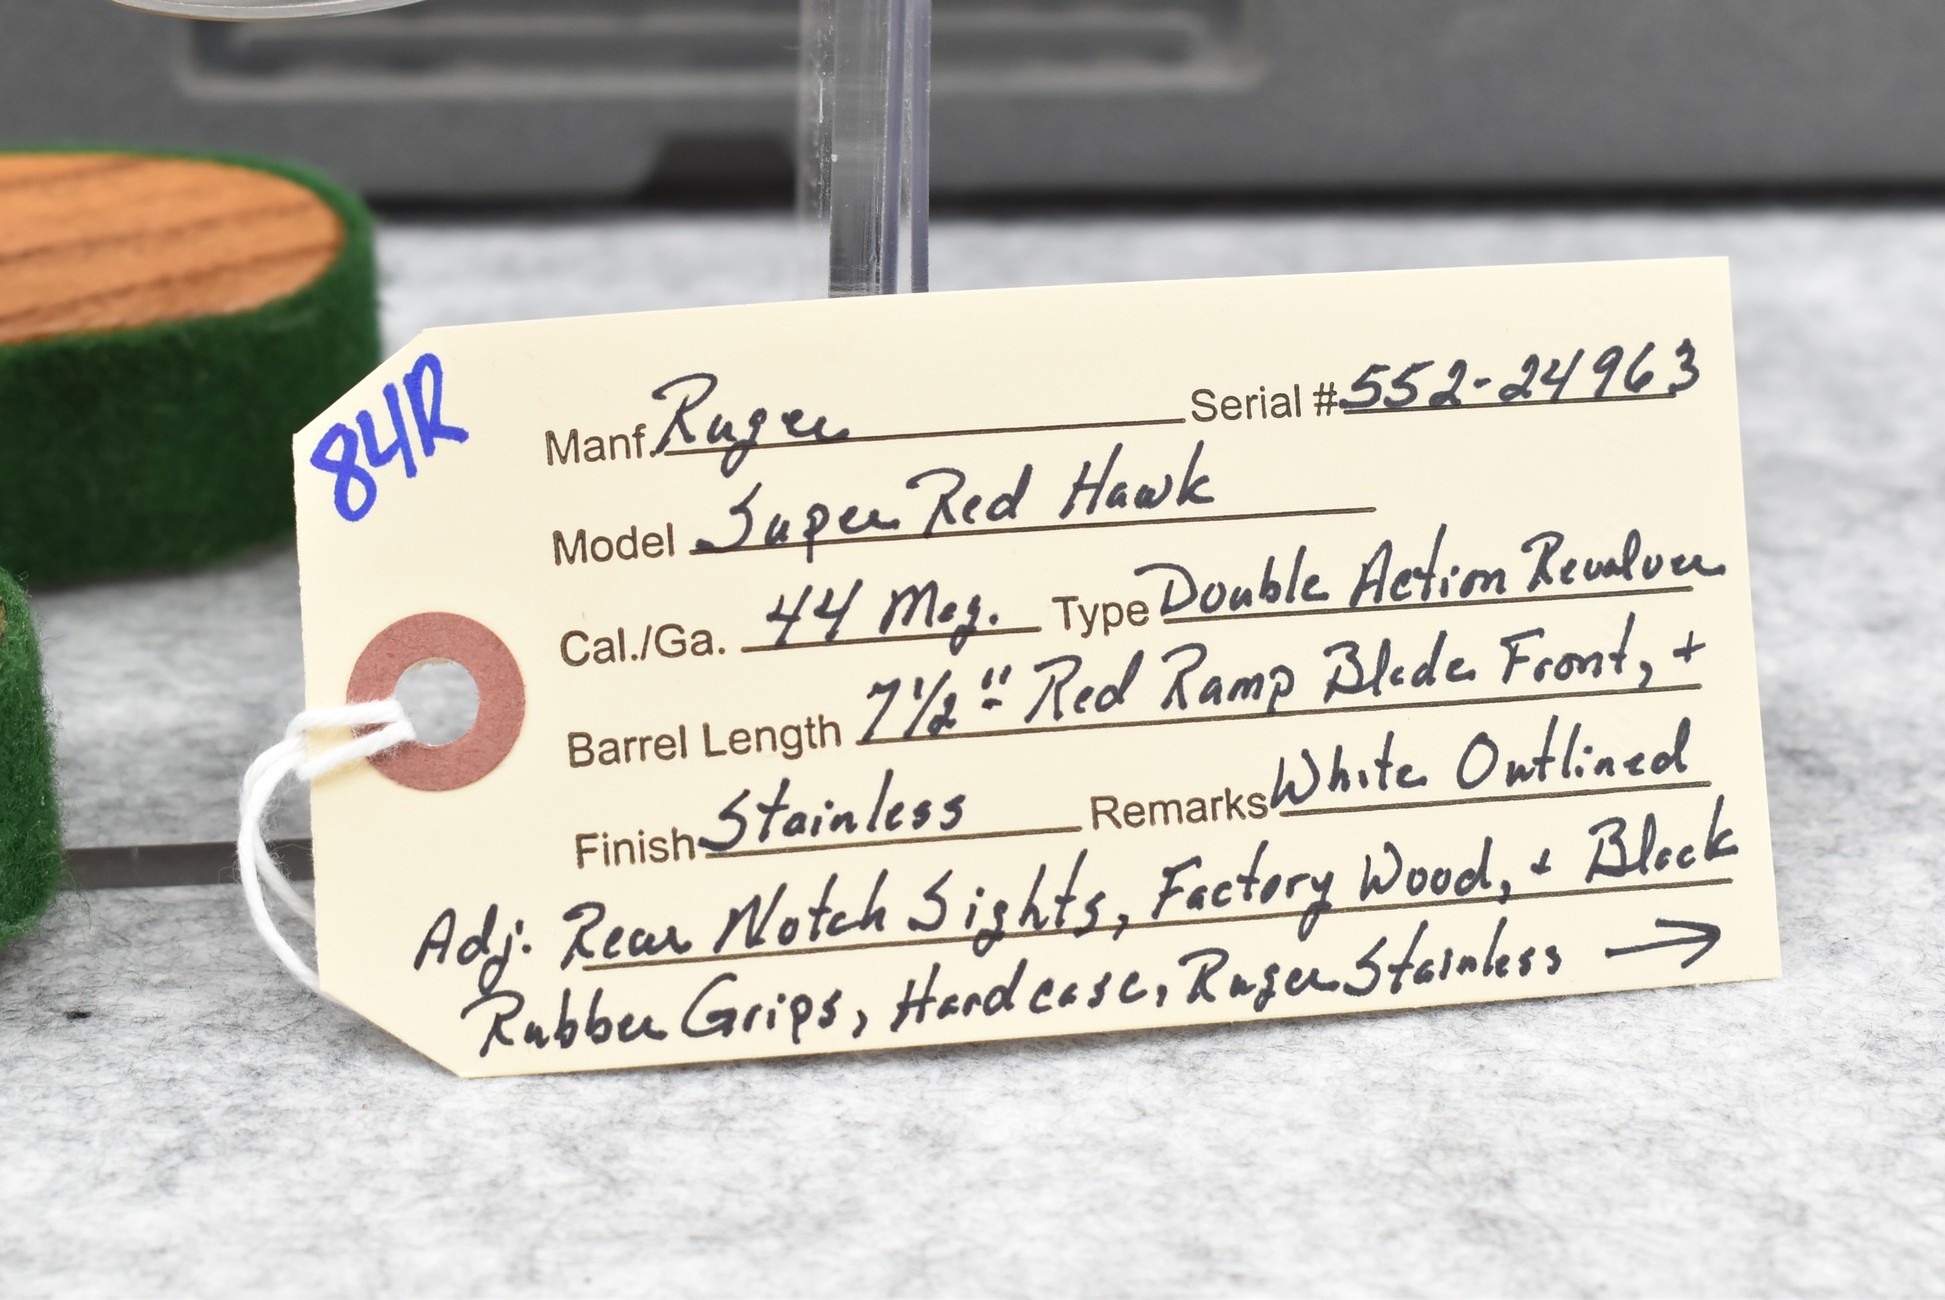 84R
Manf. Ruger Serial # 552-24963
Model Super Red Hawk
Cal./Ga. 44 Mag. Type Double Action Revolver
Barrel Length 7 1/2" Red Ramp Blade Front, +
Finish Stainless Remarks White Outlined
Adj. Rear Notch Sights, Factory Wood, + Black
Rubber Grips, Hardcase, Ruger Stainless →